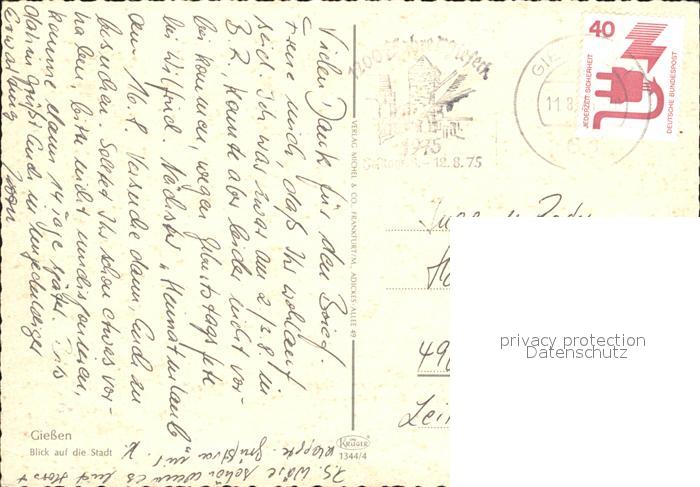 Vielen Dank für den Brief.
Freue mich, daß Ihr wohlauf
seid. Ich war zwar am 2/3.8. in
B.Z. konnte aber leider nicht vor-
bei kommen, wegen Geburtstagsfete
bei Wilfried. Nächster "Heimaturlaub"
am 16.8. Versuche dann, Euch zu
besuchen. Solltet Ihr schon etwas vor-
haben, bitte nicht umdisponieren,
komme dann 14 Tage später. Bis
dahin grüßt Euch in ungeduldiger
Erwartung
P.S. Wäre schön wenn es
Gießen
Blick auf die Stadt
VERLAG MICHEL & CO., FRANKFURT/M., ADICKES-ALLEE 49
KRÜGER
1344/4
1200 Jahre
1975
- 12.8.75
11.8.
40
JEDERZEIT SICHERHEIT
DEUTSCHE BUNDESPOST
privacy protection
Datenschutz